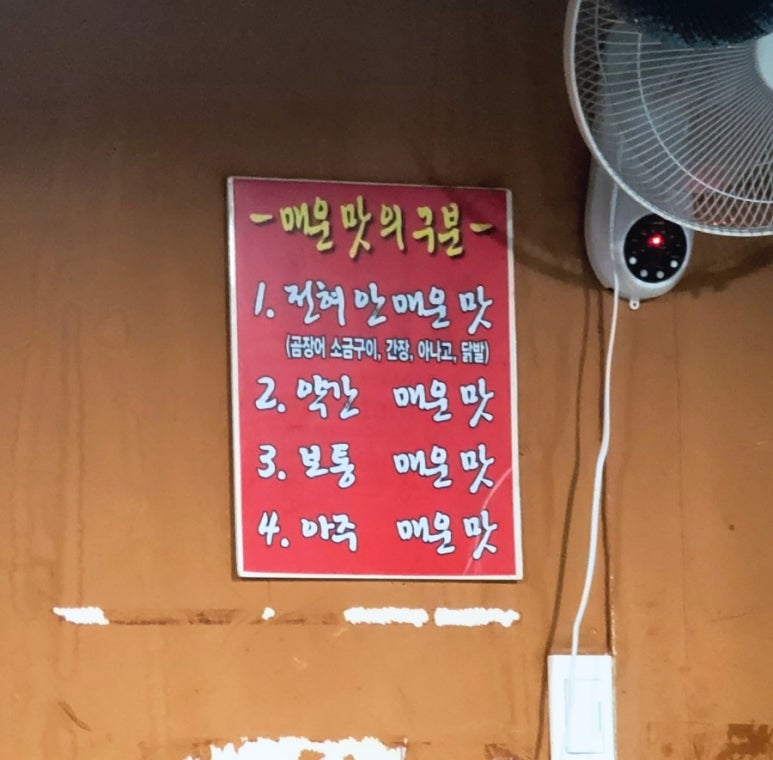 -매운 맛의 구분-
1. 전혀 안 매운 맛
(곰장어 소금구이, 간장, 아나고, 닭발)
2. 약간 매운 맛
3. 보통 매운 맛
4. 아주 매운 맛